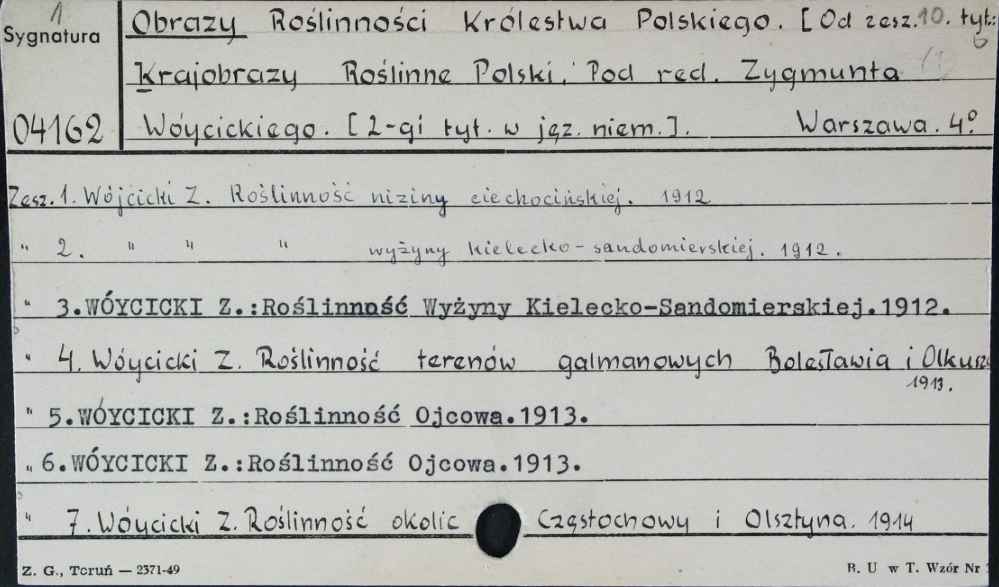 1
Sygnatura
04162
Obrazy Roślinności Królestwa Polskiego. [Od zesz. 10. tyt:
Krajobrazy Roślinne Polski. Pod red. Zygmunta (1)
Wóycickiego. [2-gi tyt. w jęz. niem.]. Warszawa. 4°
Zesz. 1. Wójcicki Z. Roślinność niziny ciechocińskiej. 1912
" 2. " " " wyżyny kielecko-sandomierskiej. 1912.
" 3. WÓYCICKI Z.: Roślinność Wyżyny Kielecko-Sandomierskiej. 1912.
" 4. Wóycicki Z. Roślinność terenów galmanowych Bolesławia i Olkusz
1913.
" 5. WÓYCICKI Z.: Roślinność Ojcowa. 1913.
" 6. WÓYCICKI Z.: Roślinność Ojcowa. 1913.
" 7. Wóycicki Z. Roślinność okolic Częstochowy i Olsztyna. 1914
Z. G., Toruń — 2371-49
B. U w T. Wzór Nr